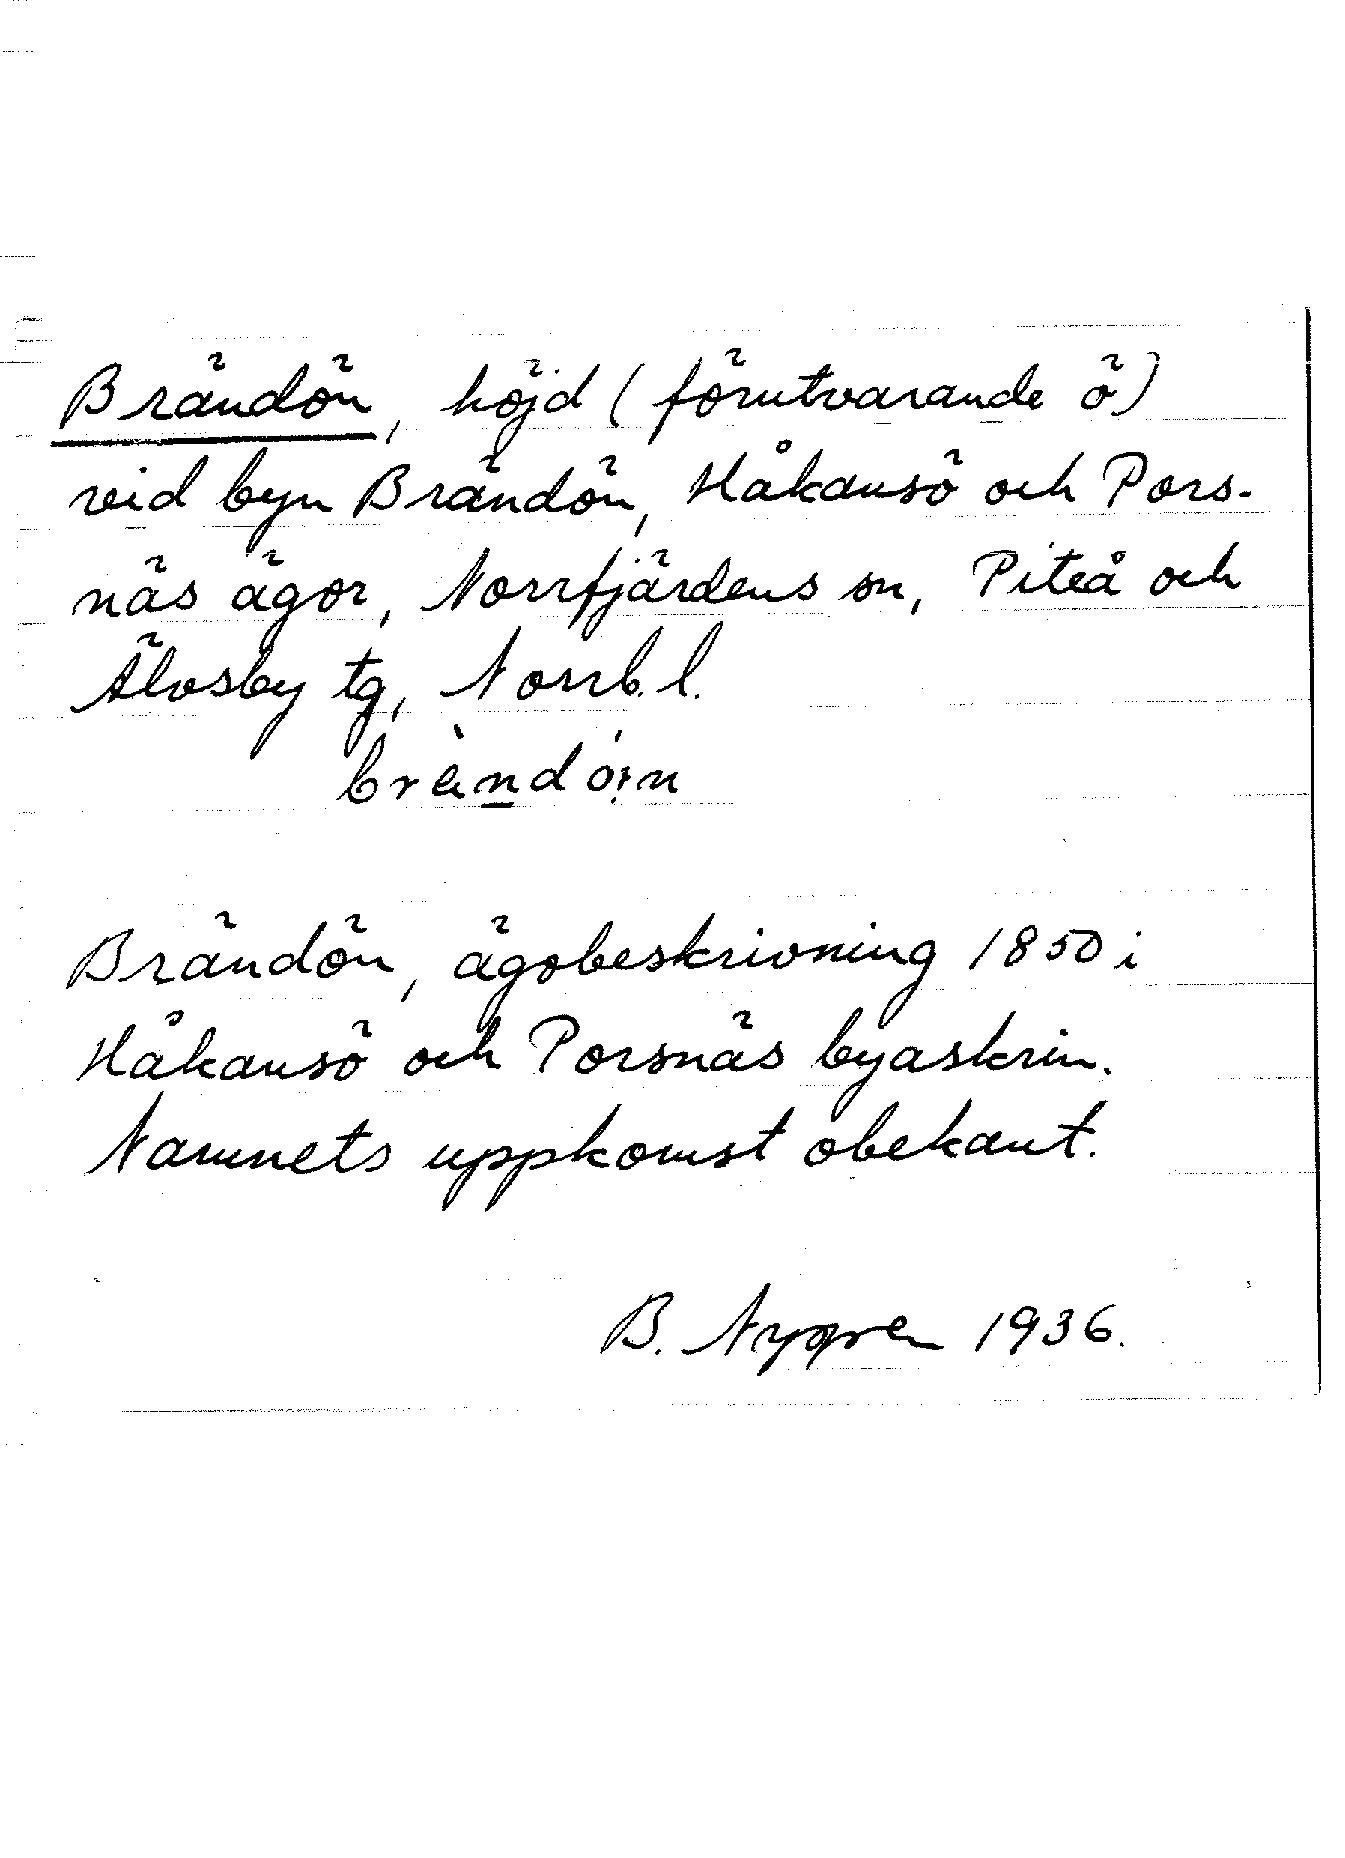 Brändön, höjd (förutvarande ö)
vid byn Brändön, Håkansö och Pors-
näs ägor, Norrfjärdens sn, Piteå och
Älvsby tg, Norrb. l.
brèndǿ:n
Brändön, ägobeskrivning 1850 i
Håkansö och Porsnäs byaskrin.
Namnets uppkomst obekant.
B. Nygren 1936.